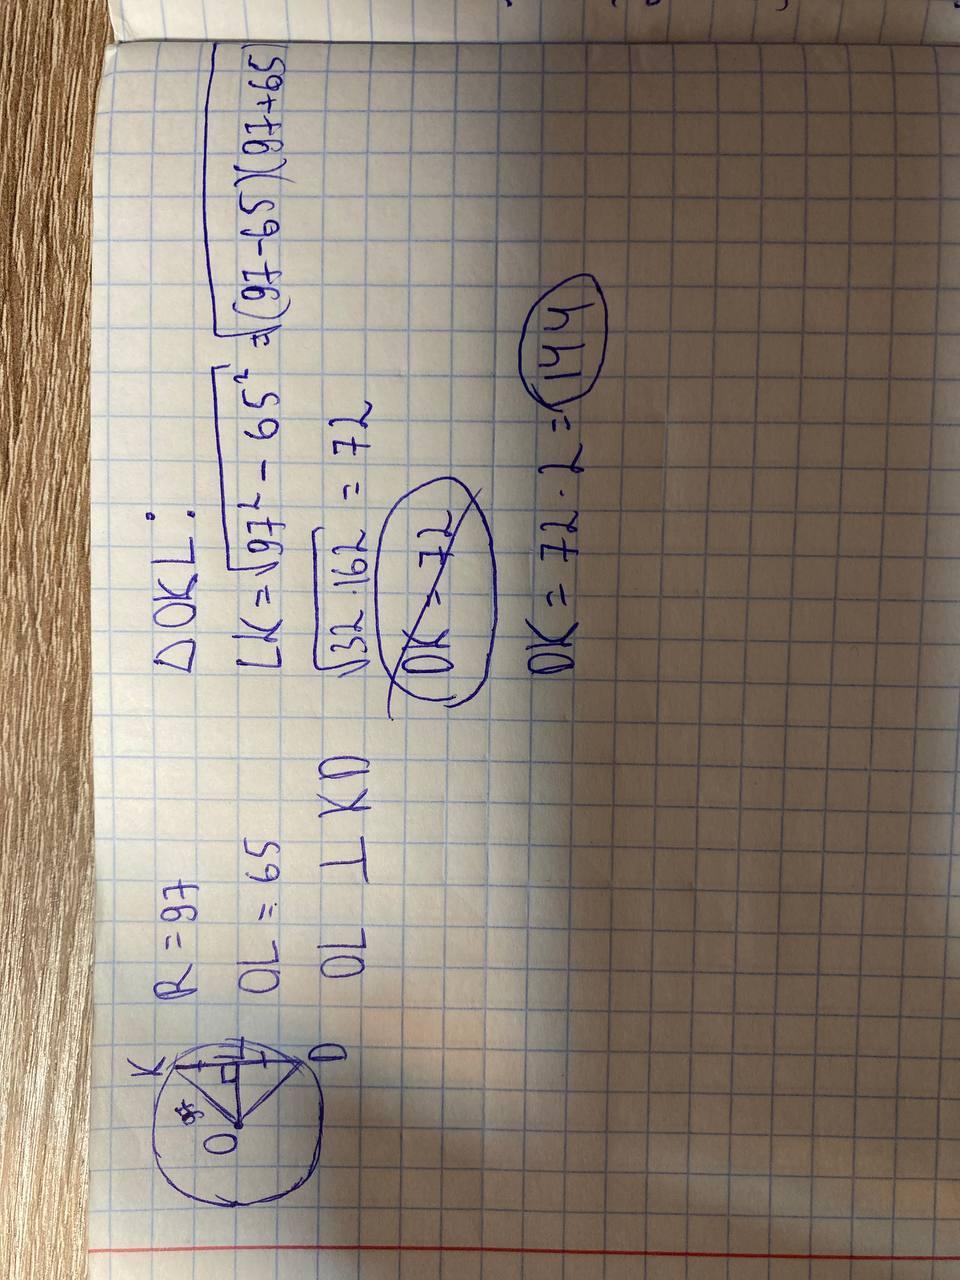 K
97
O
L
D
R = 97
OL = 65
OL ⊥ KD
△OKL:
LK = √97² - 65² = √(97-65)(97+65)
√32·162 = 72
DK = 72
DK = 72 · 2 = 144